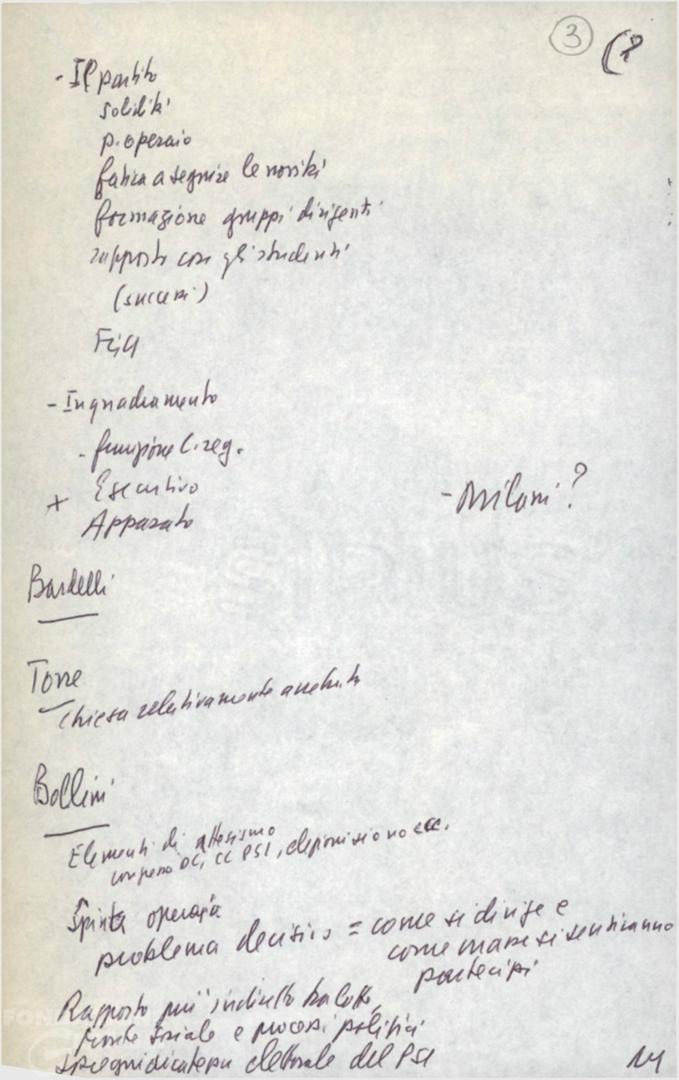 3 (8
- Il partito
solidità
p. operaio
fatica a seguire le novità
formazione gruppi dirigenti
rapporto con gli studenti
(successi)
FGCI
- Inquadramento
- funzione C. reg.
+ Esecutivo
Apparato
- Milani?
Bardelli
Torre
Chiesa relativamente arretrata
Bollini
Elementi di attesismo
congresso DC, CC PSI, elezioni si o no ecc.
Spinta operaia
problema decisivo = come si dirige e
come masse si sentiranno
partecipi
Rapporto più indiretto tra lotte,
fronte sociale e processi politici
elettorale del PSI